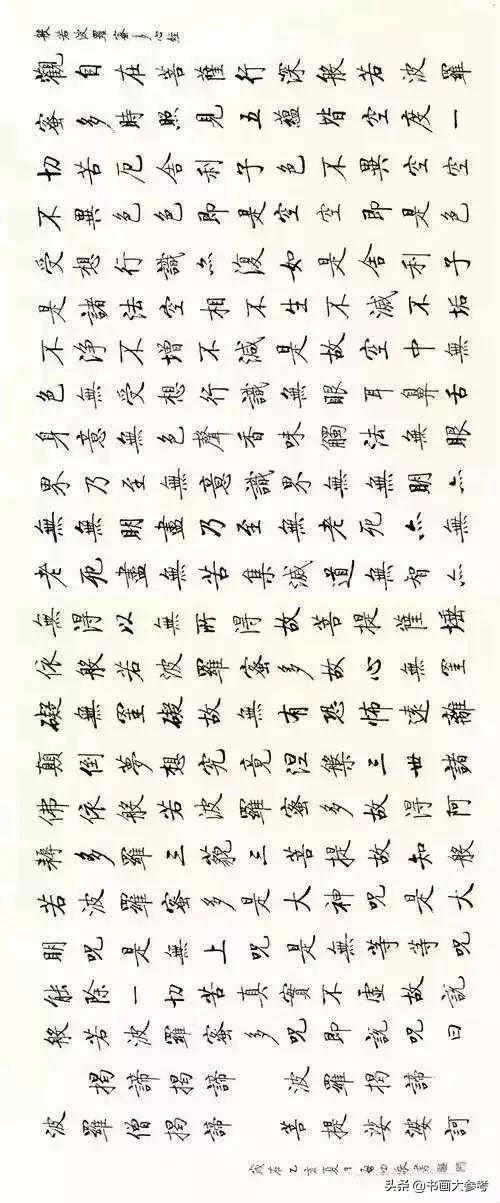 般若波羅蜜多心經
觀自在菩薩行深般若波羅
蜜多時照見五蘊皆空度一
切苦厄舍利子色不異空空
不異色色即是空空即是色
受想行識亦復如是舍利子
是諸法空相不生不滅不垢
不淨不增不減是故空中無
色無受想行識無眼耳鼻舌
身意無色聲香味觸法無眼
界乃至無意識界無無明亦
無無明盡乃至無老死亦無
老死盡無苦集滅道無智亦
無得以無所得故菩提薩埵
依般若波羅蜜多故心無罣
礙無罣礙故無有恐怖遠離
顛倒夢想究竟涅槃三世諸
佛依般若波羅蜜多故得阿
耨多羅三藐三菩提故知般
若波羅蜜多是大神咒是大
明咒是無上咒是無等等咒
能除一切苦真實不虛故說
般若波羅蜜多咒即說咒曰
揭諦揭諦 波羅揭諦
波羅僧揭諦 菩提娑婆訶
歲在乙亥夏日
头条 @书画大参考